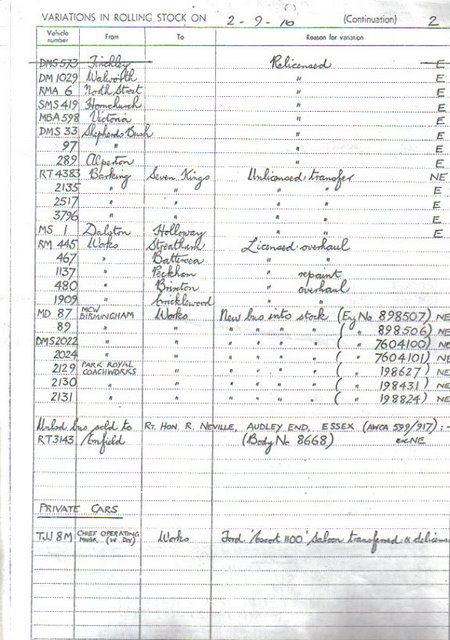 VARIATIONS IN ROLLING STOCK ON 2-9-76 (Continuation) 2
Vehicle number From To Reason for variation
DMS 573 Finchley Relicensed E
DM 1029 Walworth " E
RMA 6 North Street " E
SMS 419 Hornchurch " E
MBA 598 Victoria " E
DMS 33 Shepherds Bush " E
97 " " E
289 Alperton " E
RT 4383 Barking Seven Kings Unlicensed transfer NE
2135 " " " " E
2517 " " " " E
3796 " " " " E
MS 1 Dalston Holloway " " E
RM 445 Works Streatham Licensed overhaul
467 " Battersea " "
1137 " Peckham " repaint
480 " Brixton " overhaul
1909 " Cricklewood " "
MD 87 MCW BIRMINGHAM Works New bus into stock (Eng No 898507) NE
89 " " " " " " ( " 898506) NE
DMS2022 " " " " " " ( " 7604100) NE
2024 " " " " " " ( " 7604101) NE
2129 PARK ROYAL COACHWORKS " " " " " ( " 198627) NE
2130 " " " " " " ( " 198431) NE
2131 " " " " " " ( " 198824) NE
Unlcd bus sold to RT. HON. R. NEVILLE, AUDLEY END, ESSEX (AWCA 599/917) :-
RT3143 Enfield (Body No 8668) NE
PRIVATE CARS
TJJ 8M CHIEF OPERATING MANGR. Works Ford 'Escort 1100' Saloon transferred & delicens